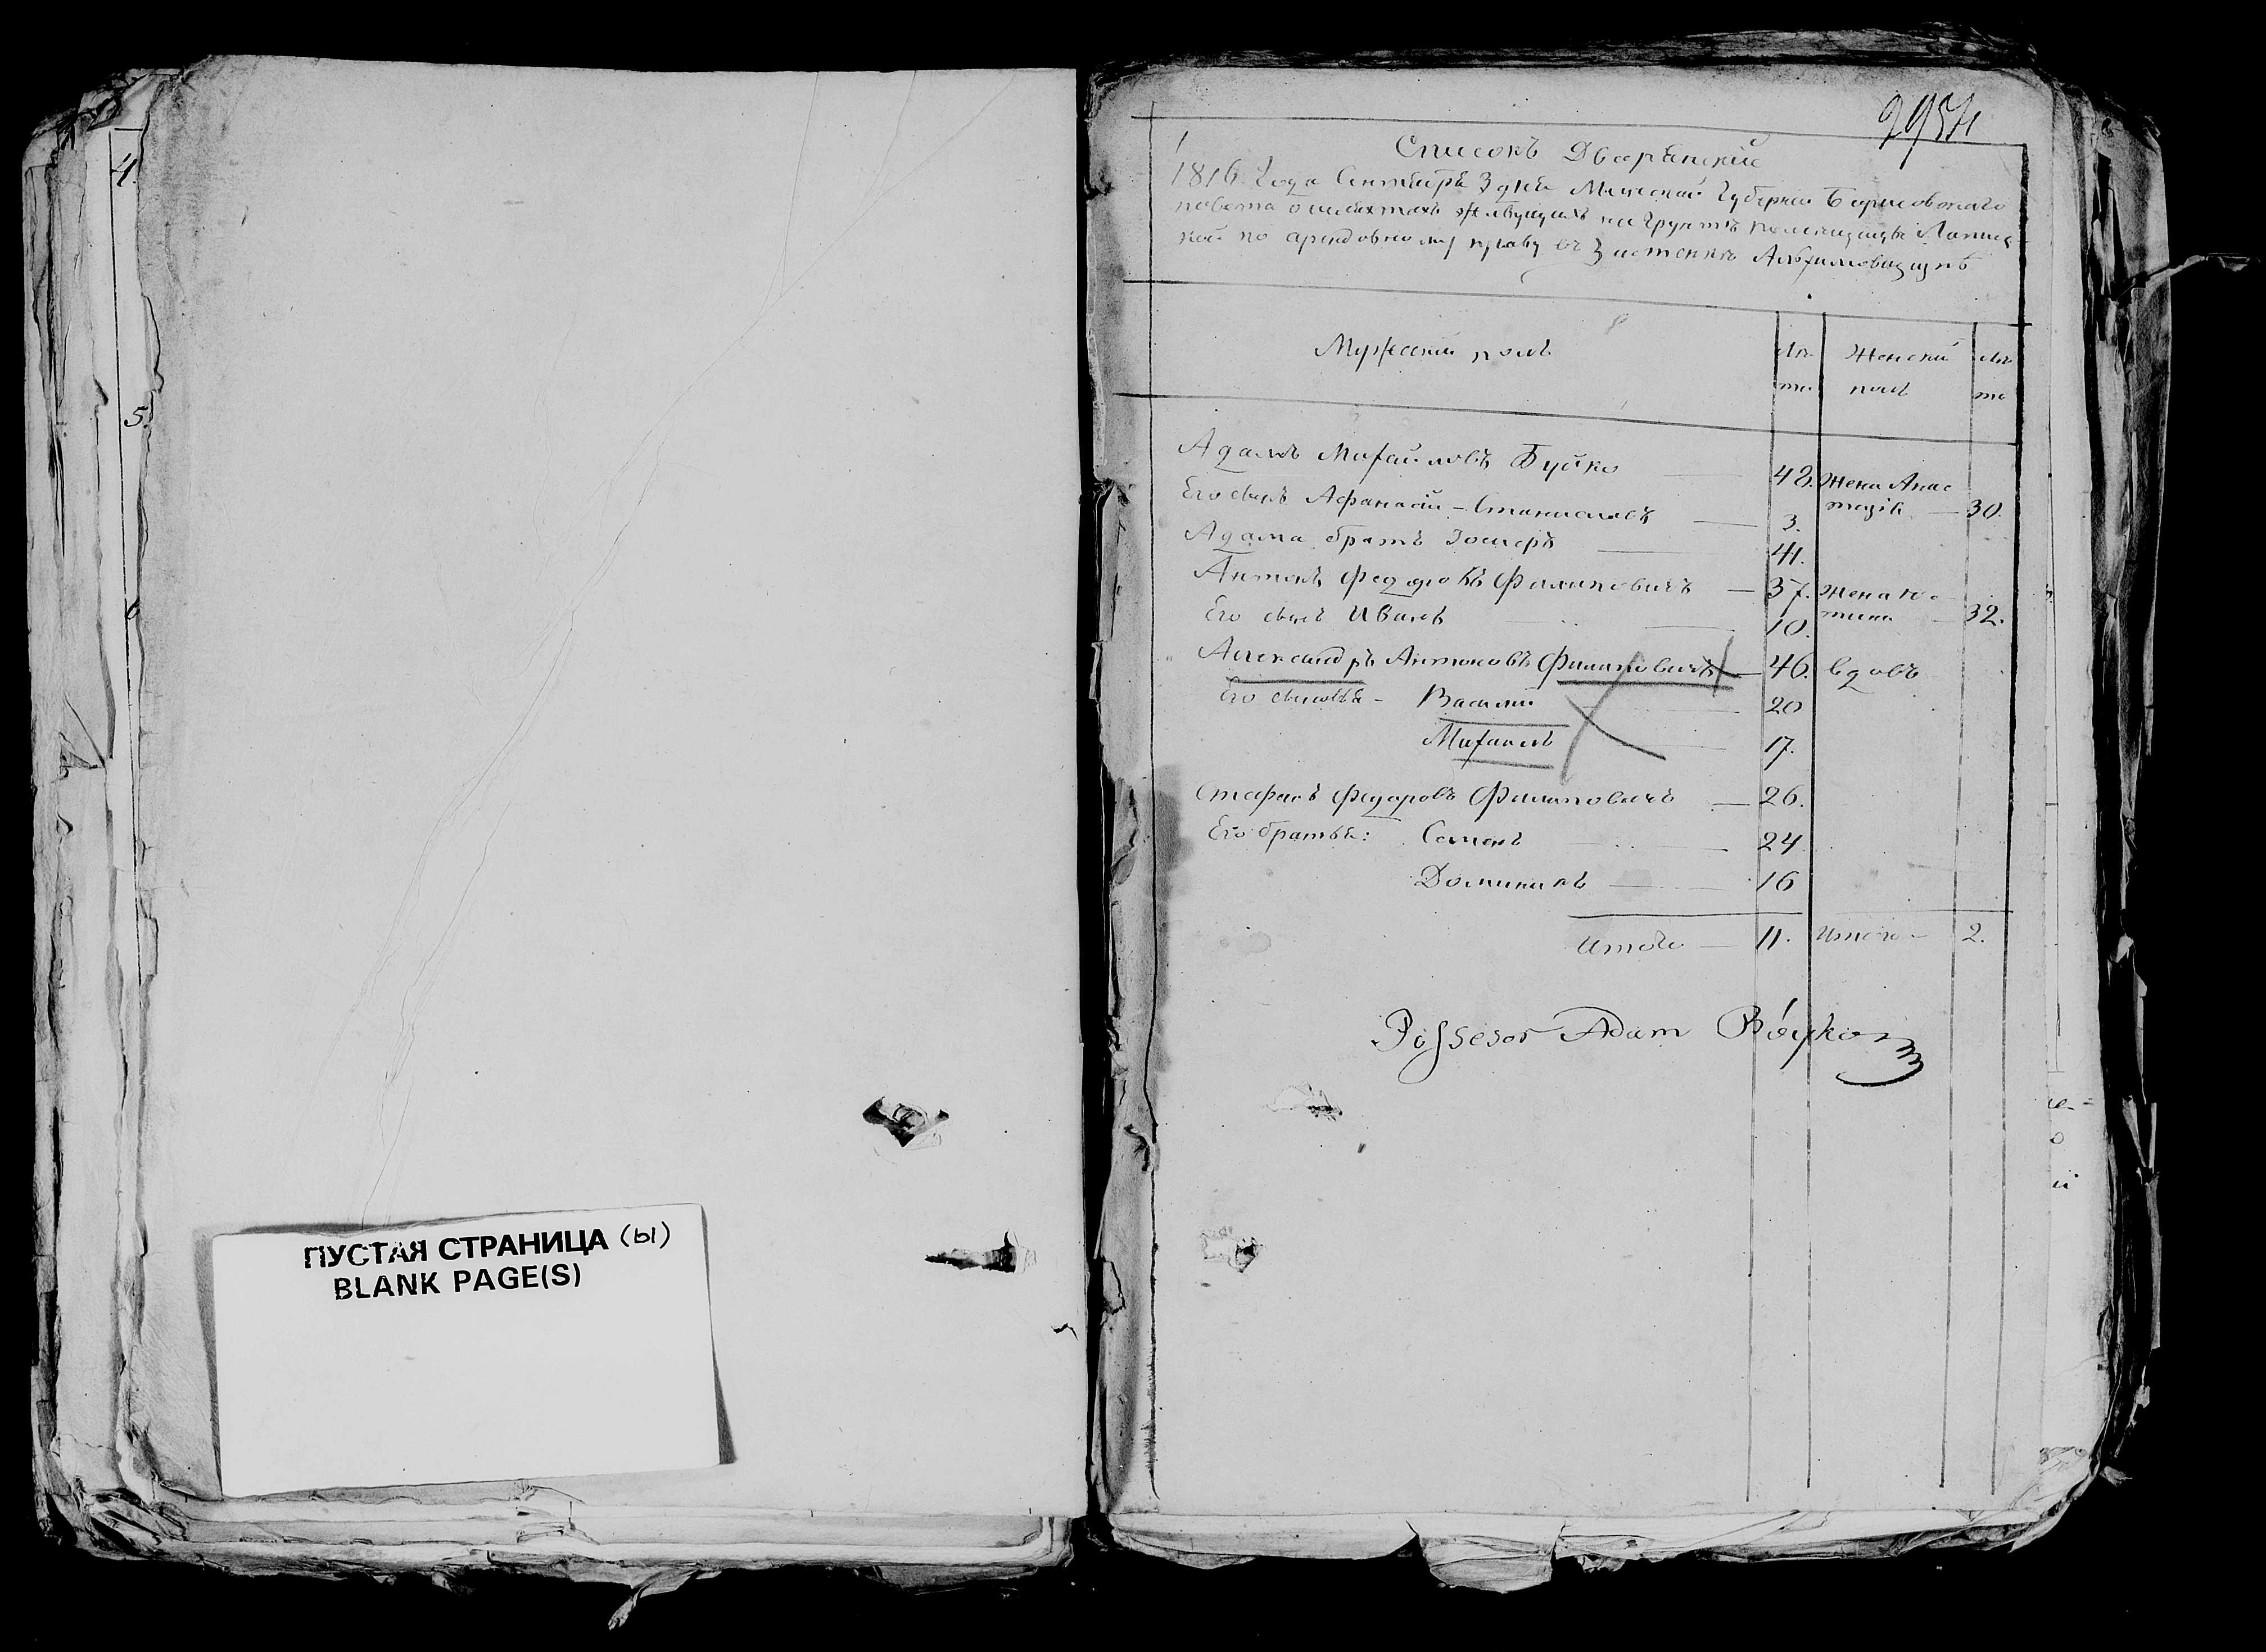 4.
5.
6
ПУСТАЯ СТРАНИЦА (ы)
BLANK PAGE(S)
Списокъ Дворянскій
1816 Года Сентября 3 дня Минской Губерніи Борисовскаго
повета о шляхтахъ жывущихъ на грунтѣ помещицы
кой по арендовному праву въ Застенкѣ
Мужескій полъ
Лѣ
та
Женскій
полъ
Лѣ
та
Адамъ Михайловъ Буйко 48. Жена Анас
тазія 30.
Его сынъ Афанасій - Станиславъ 3.
Адама братъ Іосифъ 41.
Антонъ Федоровъ Филиповичъ 37. Жена Ю
стина 32.
Его сынъ Иванъ 10.
Александръ Антоновъ Филиповичъ 46. вдовъ
Его сыновья - Василий 20
Михаилъ 17.
Стефанъ Федоровъ Филиповичъ 26.
Его братья: Семенъ 24
Доминикъ 16
Итого 11. Итого 2.
Possesor Adam Bóyko